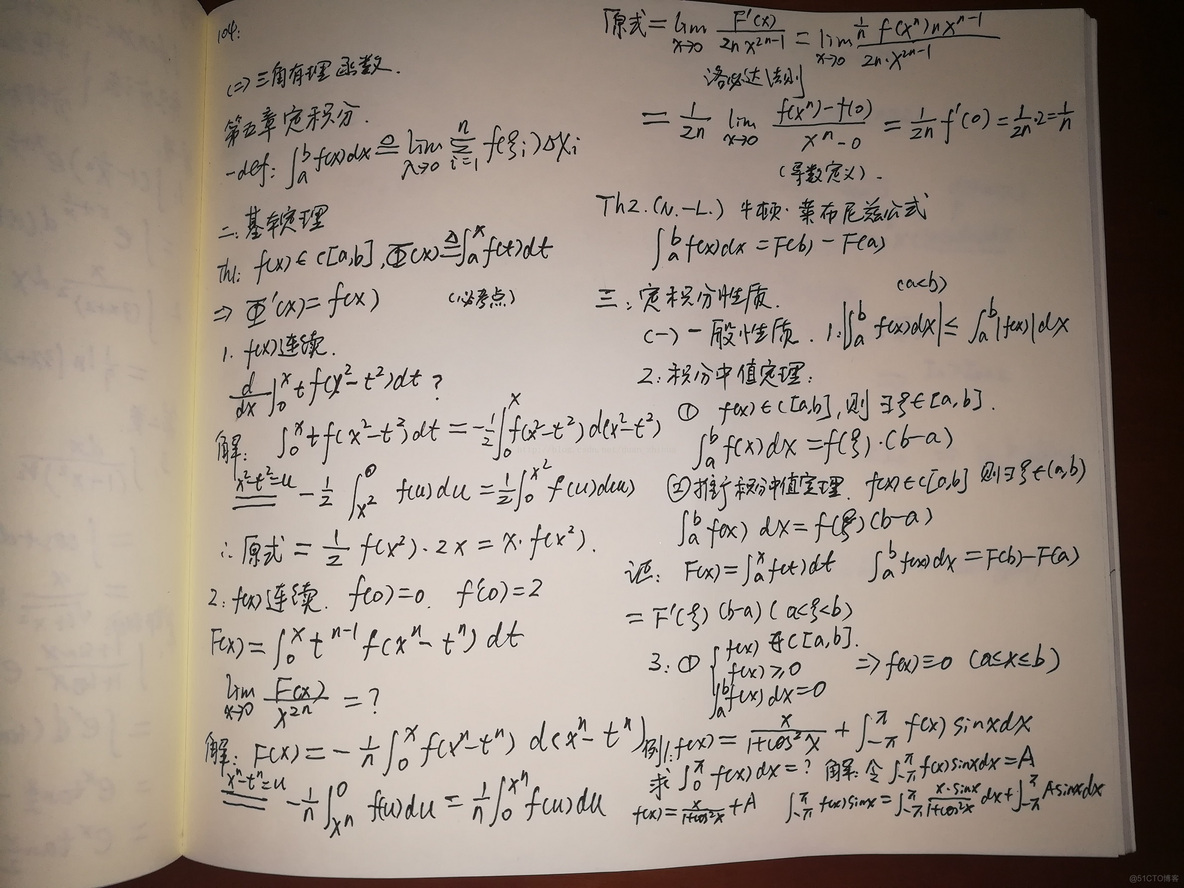 104:
(二)三角有理函数.
第五章定积分.
一def: ∫_a^b f(x)dx ≜ lim_{λ→0} Σ_{i=1}^n f(ξi)ΔXi
二:基本定理
Th1: f(x)∈C[a,b],Φ(x)≜∫_a^x f(t)dt
⇒ Φ'(x)=f(x) (必考点)
1. f(x)连续.
d/dx ∫_0^x t f(x²-t²)dt ?
解: ∫_0^x t f(x²-t²)dt = -1/2 ∫_0^x f(x²-t²)d(x²-t²)
x²-t²=u = -1/2 ∫_{x²}^0 f(u)du = 1/2 ∫_0^{x²} f(u)d(u)
∴原式 = 1/2 f(x²)·2x = x·f(x²).
2: f(x)连续. f(0)=0. f'(0)=2
F(x)=∫_0^x t^{n-1} f(x^n-t^n) dt
lim_{x→0} F(x)/x^{2n} = ?
解: F(x) = -1/n ∫_0^x f(x^n-t^n) d(x^n-t^n)
x^n-t^n=u = -1/n ∫_{x^n}^0 f(u)du = 1/n ∫_0^{x^n} f(u)du
原式 = lim_{x→0} F'(x)/(2n x^{2n-1}) = lim_{x→0} (1/n f(x^n) n x^{n-1})/(2n·x^{2n-1})
洛必达法则
= 1/2n lim_{x→0} (f(x^n)-f(0))/(x^n-0) = 1/2n f'(0) = 1/2n·2 = 1/n
(导数定义).
Th2.(N.-L.) 牛顿·莱布尼兹公式
∫_a^b f(x)dx = F(b) - F(a)
三:定积分性质. (a<b)
(一)一般性质. 1.|∫_a^b f(x)dx| ≤ ∫_a^b |f(x)|dx
2:积分中值定理:
① f(x)∈C[a,b],则∃ξ∈[a,b].
∫_a^b f(x)dx = f(ξ)·(b-a)
②推广积分中值定理. f(x)∈C[a,b] 则∃ξ∈(a,b)
∫_a^b f(x) dx = f(ξ)(b-a)
证: F(x)=∫_a^x f(t)dt ∫_a^b f(x)dx = F(b)-F(a)
= F'(ξ)(b-a) (a<ξ<b)
3: ① { f(x)∈C[a,b].
f(x)≥0 ⇒ f(x)≡0 (a≤x≤b)
∫_a^b f(x)dx=0
例1: f(x) = x/(1+cos²x) + ∫_{-π}^π f(x) sinxdx
求 ∫_0^π f(x)dx = ? 解:令 ∫_{-π}^π f(x)sinxdx = A
f(x) = x/(1+cos²x) + A ∫_{-π}^π f(x)sinx = ∫_{-π}^π x·sinx/(1+cos²x) dx + ∫_{-π}^π Asinxdx
@51CTO博客